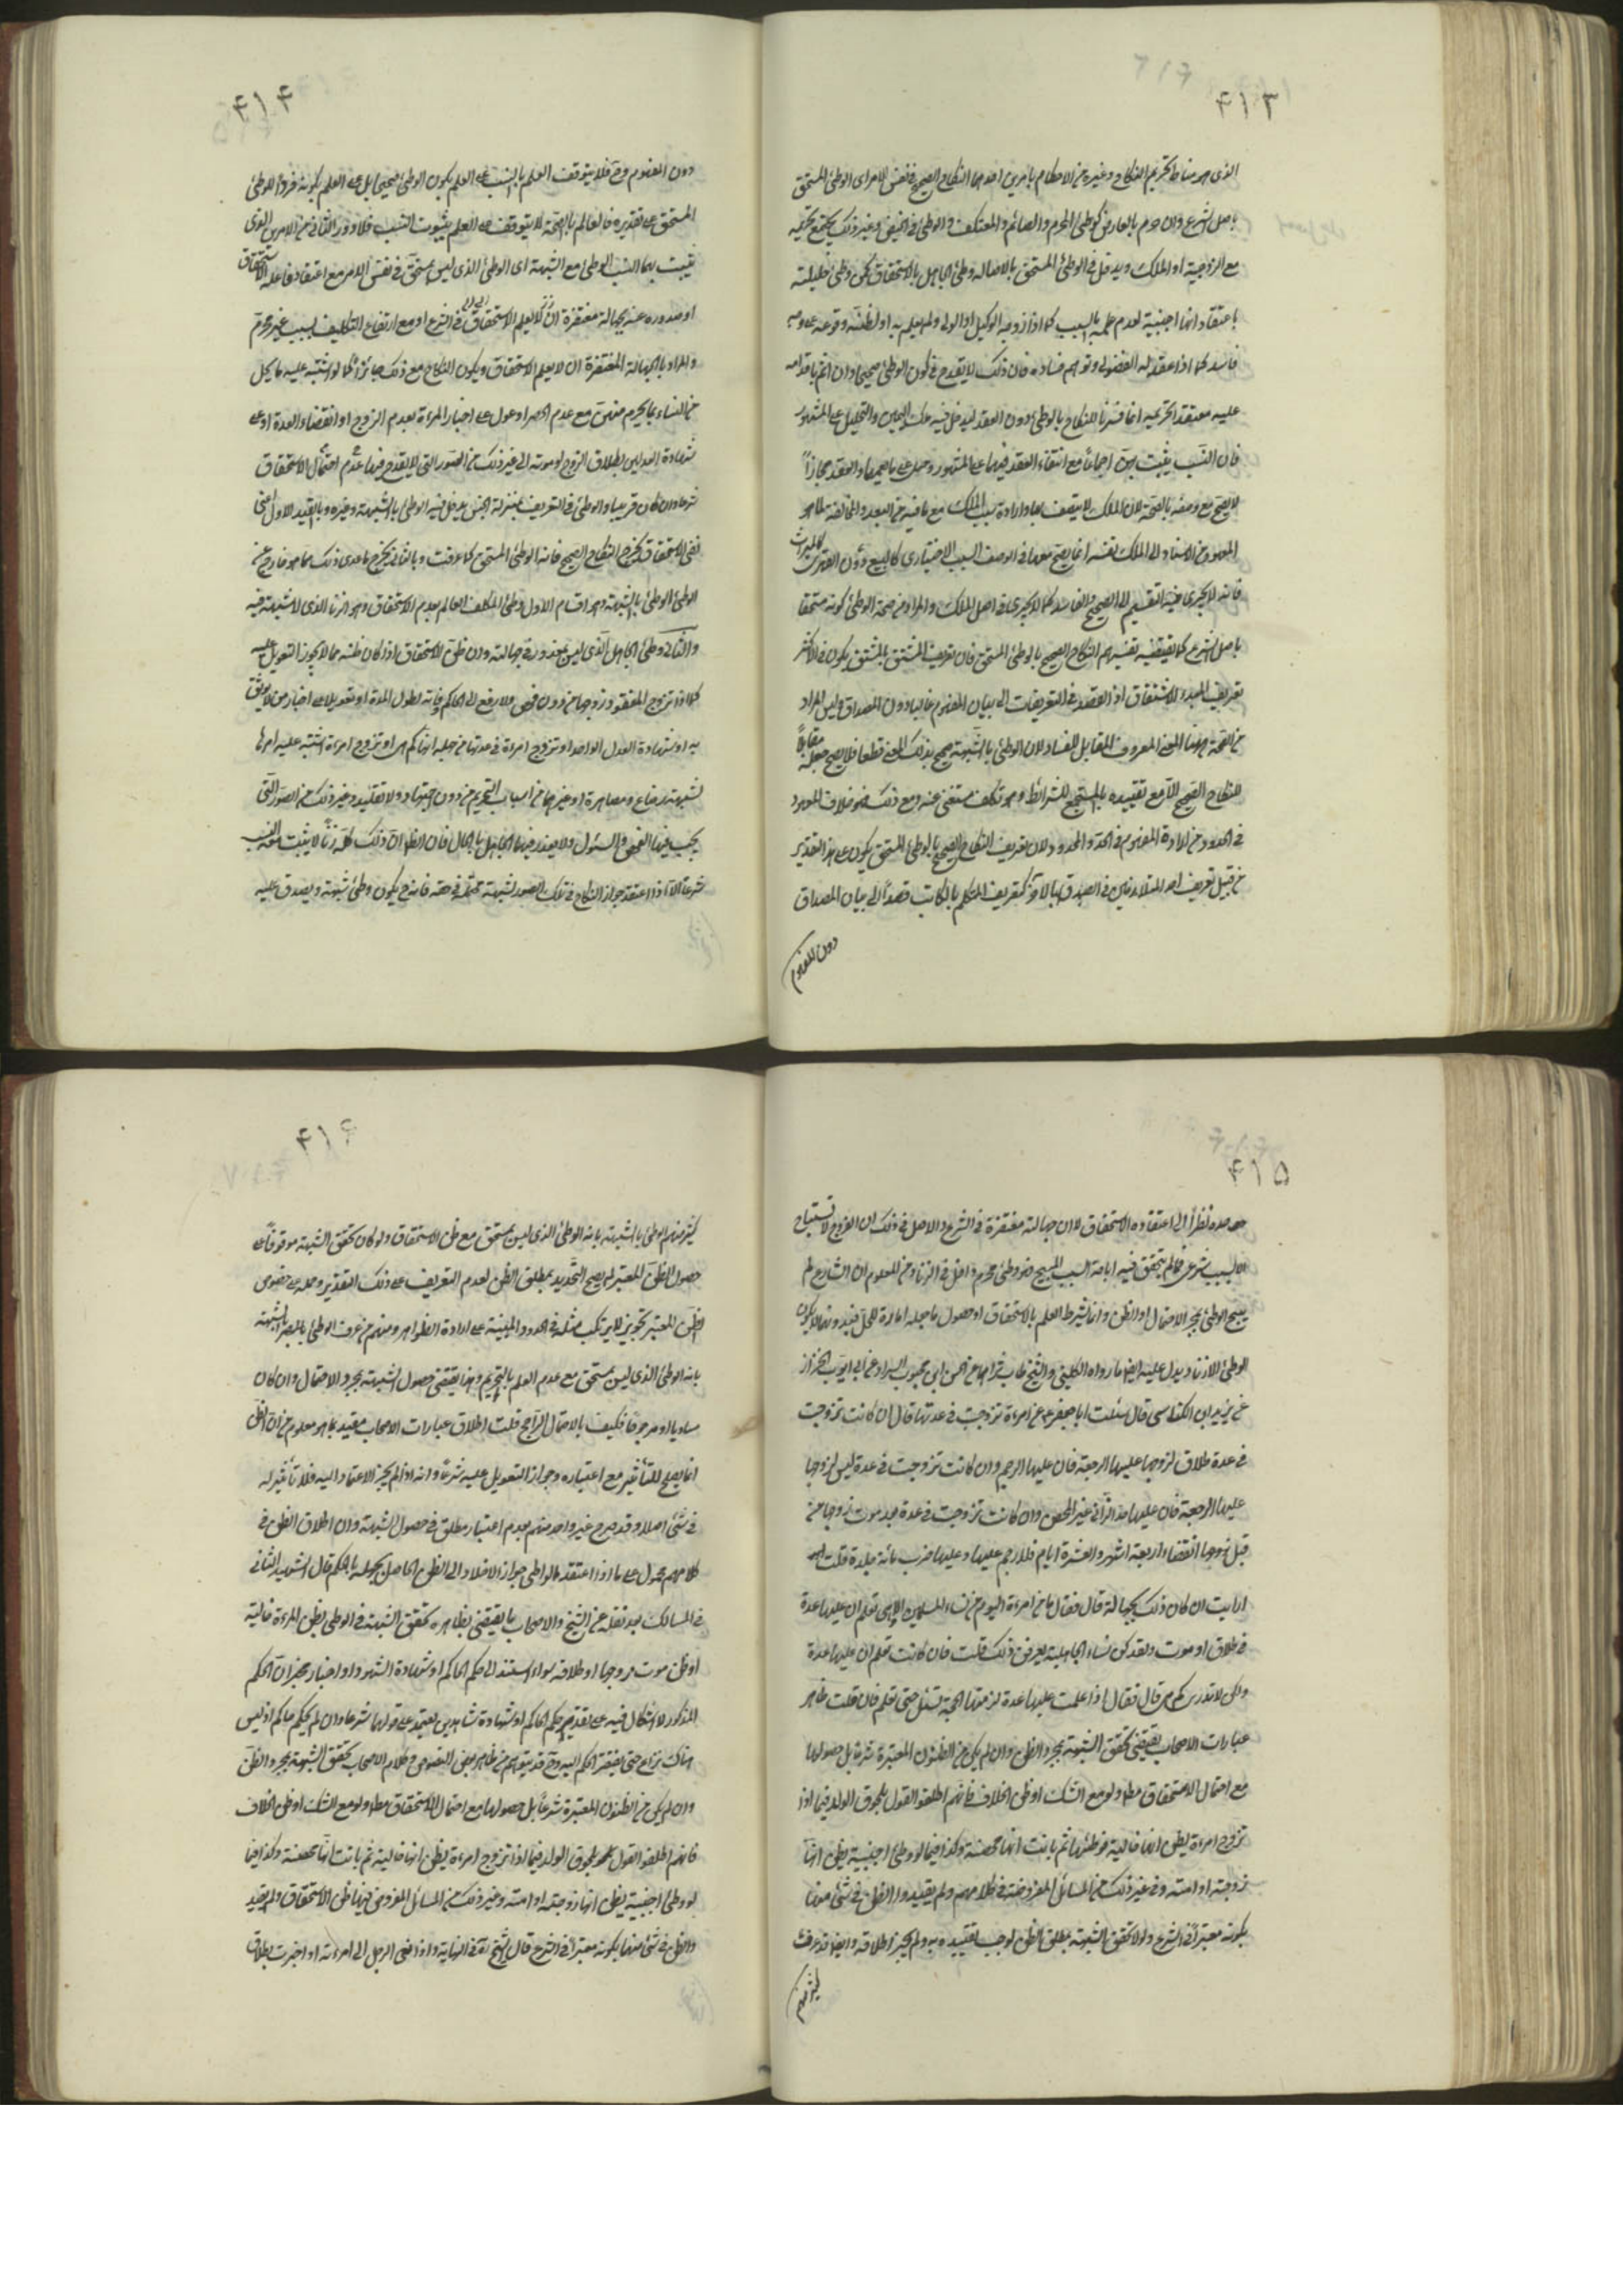 ۴۱۳
الذى هو مناط تحريم النكاح وغيره من الاحكام بامرين احدهما النكاح الصحيح فى نفس الامر اى الوطئ المستحق
باصل الشرع وان حرم بالعارض كوطئ المحرم والصائم والمعتكف والوطئ فى الحيض وغير ذلك
مع الزوجية او الملك ويدخل فى الوطئ المستحق بالاصالة وطئ الجاهل بالاستحقاق كمن وطئ حليلته
باعتقاد انها اجنبية لعدم علمه بالسبب كما اذا زوجه الوكيل او الولى ولم يعلم به او لظنه وقوعه على وجه
فاسد كما اذا عقد له الفضولى وتوهم فساده فان ذلك لا يقدح فى كون الوطئ صحيحا وان اثم باقدامه
عليه معتقدا تحريمه انما فسرنا النكاح بالوطئ دون العقد ليدخل فيه ملك اليمين والتحليل على المشهور
فان النسب يثبت بهما اجماعا مع انتفاء العقد فيهما على المشهور وحمله على ما يعمهما والعقد مجازا
لا يصح مع وصفه بالصحة لان الملك لا يتصف بها وارادة سبب الملك مع ما فيه من البعد والمخالفة لما هو
المعهود من الاسناد الى الملك نفسه انما يصح معها فى الوصف السبب الاختيارى كالبيع دون القهرى كالميراث
فانه لا يجرى فيه التقسيم الى الصحيح والفاسد كما لا يجرى فى اصل الملك والمراد من صحة الوطئ كونه مستحقا
باصل الشرع كما يقتضيه تفسيرهم النكاح الصحيح بالوطئ المستحق فان تعريف المشتق بالمشتق يكون فى الاكثر
تعريف المبدء للاشتقاق اذ القصد فى التعريفات الى بيان المفهوم غالبا دون المصداق وليس المراد
من الصحة هيهنا المعنى المعروف المقابل للفساد لان الوطئ بالشبهة صحيح بذلك المعنى قطعا فلا يصح جعله مقابلا
للنكاح الصحيح الا مع تقييده بالمستجمع للشرائط وهو تكلف مستغنى عنه ومع ذلك فهو خلاف المعهود
فى الحدود من ارادة المفهوم فى الحد والمحدود لان تعريف النكاح الصحيح بالوطئ المستحق يكون على هذا التقدير
من قبيل تعريف احد المتلازمين فى الصدق بالآخر كتعريف المتكلم بالكاتب قصدا الى بيان المصداق
دون المفهوم
۴۱۴
دون المفهوم وح فلا يتوقف العلم بالنسب على العلم بكون الوطئ صحيحا بل على العلم بكونه فردا للوطئ
المستحق على تقديره فالعالم بالصحة لا يتوقف على العلم بثبوت النسب فلا دور الثانى من الامرين الذى
يثبت بهما النسب الوطئ مع الشبهة اى الوطئ الذى ليس بمستحق فى نفس الامر مع اعتقاد فاعله الاستحقاق
او صدوره عنه بجهالة مغتفرة فى الشرع او مع ارتفاع التكليف بسبب غير محرم
والمراد بالجهالة المغتفرة ان لا يعلم الاستحقاق ويكون النكاح مع ذلك جائزا كما لو اشتبه عليه ما يحل
من النساء بما يحرم منهن مع عدم الحصر او عول على اخبار المرءة بعدم الزوج او انقضاء العدة او على
شهادة العدلين بطلاق الزوج او موته الى غير ذلك من الصور التى لا يقدح فيها عدم احتمال الاستحقاق
شرعا وان كان قريبا والوطئ فى التعريف بمنزلة الجنس يدخل فيه الوطئ بالشبهة وغيره وبالقيد الاول اعنى
نفى الاستحقاق يخرج النكاح الصحيح فانه الوطئ المستحق كما عرفت وبالثانى يخرج ما عدى ذلك مما هو خارج عن
الوطئ بالشبهة وهو اقسام الاول وطئ المكلف العالم بعدم الاستحقاق وهو الزنا الذى لا شبهة فيه
والثانى وطئ الجاهل الذى ليس بمعذور فى جهالته وان ظن الاستحقاق اذا كان ظنه مما لا يجوز التعويل عليه
كما اذا تزوج المفقود زوجها من دون فحص ولا رفع الى الحاكم بظن وفاته لطول المدة او تعويلا على اخبار من لا يوثق
به او شهادة العدل الواحد او تزوج امرءة فى عدتها من جهله انها كم هى او تزوج امرءة اشتبه عليه امرها
لشبهة رضاع ومصاهرة او غيرهما من اسباب التحريم من دون اجتهاد ولا تقليد وغير ذلك من الصور التى
يجب فيها الفحص والسئول ولا يعذر فيها الجاهل بالحال فان الظاهر ان ذلك كله زنا لا يثبت معه النسب
شرعا الا اذا اعتقد جواز النكاح فى تلك الصور لشبهة محتملة فى حقه فانه ح يكون وطئ شبهة ويصدق عليه
۴۱۵
حده نظرا الى اعتقاده الاستحقاق لا ان جهالته مغتفرة فى الشرع والاصل فى ذلك ان الفروج لا تستباح
الا بسبب شرعى فما لم يتحقق فيه اباحة السبب المبيح فهو وطئ محرم داخل فى الزنا ومن المعلوم ان الشارع لم
يبح الوطئ بمجرد الاحتمال او الظن وانما اشترط العلم بالاستحقاق او حصول ما جعله امارة للحل فبدونهما لا يكون
الوطئ الا زنا ويدل عليه ايضا ما رواه الكلينى والشيخ طاب ثراهما عن الحسن ابن محبوب السراد عن ابى ايوب الخزاز
عن يزيد بن الكناسى قال سئلت ابا جعفر ع عن امرءة تزوجت فى عدتها قال ان كانت تزوجت
فى عدة طلاق لزوجها عليها الرجعة فان عليها الرجم وان كانت تزوجت فى عدة ليس لزوجها
عليها الرجعة فان عليها حد الزانى غير المحصن وان كانت تزوجت فى عدة بعد موت زوجها من
قبل انقضاء اربعة اشهر والعشرة ايام فلا رجم عليها وعليها ضرب مائة جلدة قلت
ارايت ان كان ذلك بجهالة قال فقال ما من امرءة اليوم من نساء المسلمين الا وهى تعلم ان عليها عدة
فى طلاق او موت ولقد كن نساء الجاهلية يعرفن ذلك قلت فان كانت تعلم ان عليها عدة
ولكن لا تدرى كم هى قال فقال اذا علمت عليها عدة لزمتها الحجة تسئل حتى تعلم فان قلت ظاهر
عبارات الاصحاب يقتضى تحقق الشبهة بمجرد الظن وان لم يكن من الظنون المعتبرة شرعا بل حصولها
مع احتمال الاستحقاق مطلقا ولو مع الشك او ظن الخلاف فانهم اطلقوا القول بلحوق الولد فيما اذا
تزوج امرءة يظن انها خالية فوطئها ثم بانت انها محصنة وكذا فيما لو وطئ اجنبية يظن انها
زوجته او امته وفى غير ذلك من المسائل المفروضة فى كلامهم ولم يقيدوا الظن فى شئ منها
بكونه معتبرا فى الشرع ولولا تحقق الشبهة بمطلق الظن لوجب تقييده به ولم يجز اطلاقه وايضا قد عرفت
كثير منهم
۴۱۶
كثير منهم الوطئ بالشبهة بانه الوطئ الذى ليس بمستحق مع ظن الاستحقاق ولو كان تحقق الشبهة موقوفا على
حصول الظن المعتبر لم يصح التحديد بمطلق الظن لعدم التعريف على ذلك التقدير وحمله على خصوص
الظن المعتبر تجويز لا يرتكب مثله فى الحدود المبنية على ارادة الظواهر ومنهم من عرف الوطئ بالشبهة
بانه الوطئ الذى ليس بمستحق مع عدم العلم بالتحريم وهذا يقتضى حصول الشبهة بمجرد الاحتمال وان كان
مساويا او مرجوحا فكيف بالاحتمال الراجح قلت اطلاق عبارات الاصحاب مقيد بما هو معلوم من ان الظن
انما يصلح للتأثير مع اعتباره وجواز التعويل عليه شرعا وانه اذا لم يجز الاعتماد اليه فلا تأثير له
فى شئ اصلا وقد صرح غير واحد منهم بعدم اعتبار مطلق فى حصول الشبهة وان اطلاق الظن فى
كلامهم محمول على ما اذا اعتقد الواطى جواز الاخلاد الى الظن الحاصل بجهله بالحكم قال الشهيد الثانى
فى المسالك بعد نقله عن الشيخ والاصحاب ما يقتضى بظاهره تحقق الشبهة فى الوطى بظن المرءة خالية
او ظن موت زوجها او طلاقه سواء استند الى حكم الحاكم او شهادة الشهود او اخبار مخبر ان الحكم
المذكور لا اشكال فيه على تقدير حكم الحاكم او شهادة شاهدين يعتمد على قولهما شرعا وان لم يحكم حاكم اذ ليس
هناك نزاع حتى يفتقر الحكم اليه وح قد يتوهم من ظاهر بعض النصوص وكلام الاصحاب تحقق الشبهة بمجرد الظن
وان لم يكن من الظنون المعتبرة شرعا بل حصولها مع احتمال الاستحقاق مطلقا ولو مع الشك او ظن الخلاف
فانهم اطلقوا القول بلحوق الولد فيما اذا تزوج امرءة يظن انها خالية ثم بانت انها محصنة وكذا فيما
لو وطئ اجنبية يظن انها زوجته او امته وغير ذلك من المسائل المفروض فيها ظن الاستحقاق ولم يقيد
والظن فى شئ منها بكونه معتبرا فى الشرع قال الشيخ ره فى النهاية واذا نعى الرجل الى امرءته او اخبرت بطلاق